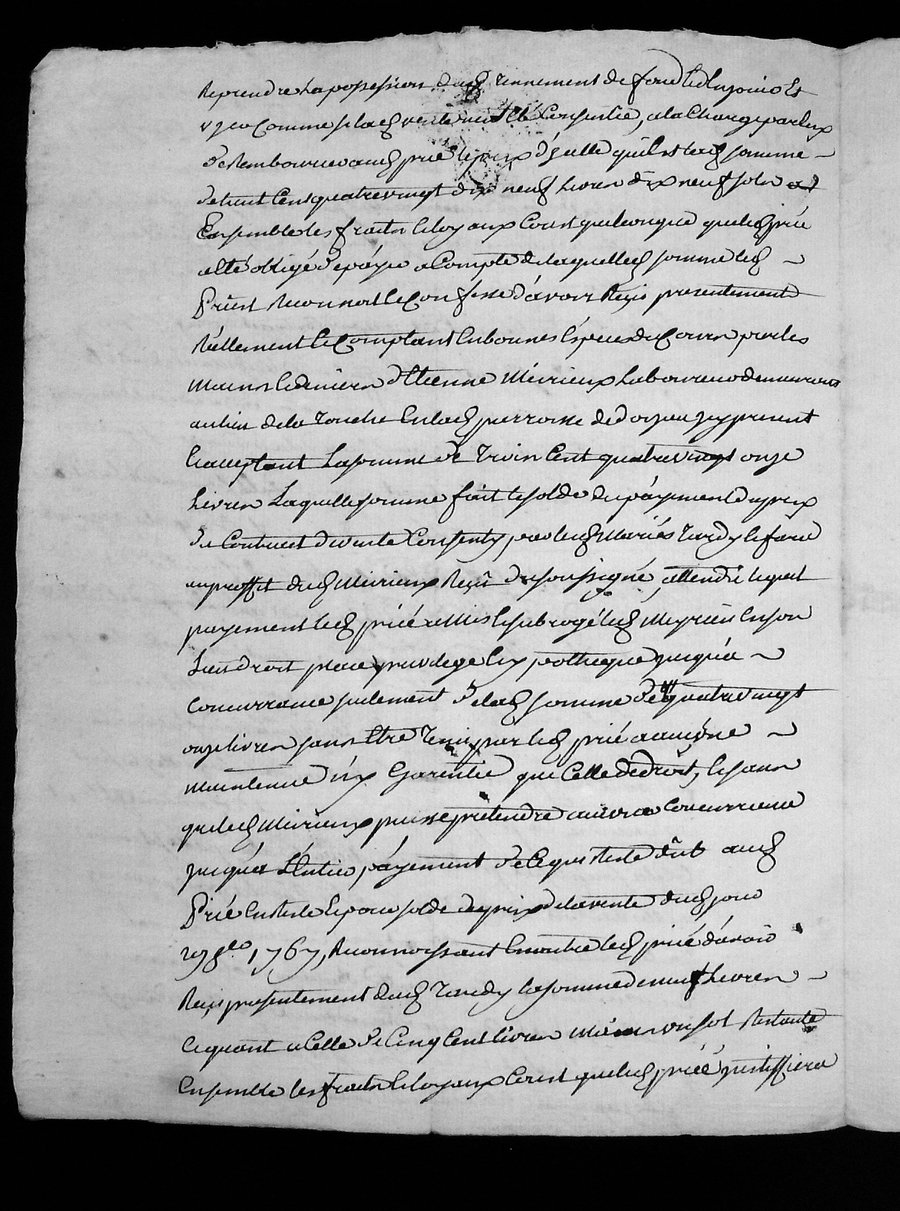 Reprendre la possession dud tennement de fond led jour et
comme si lad vente neut été Consentie, a la Charge par eux
de Rembourcer aud prié le prix d'icelle qui est lad somme
de huit Cent quatrevingt dix neuf Livres dix neuf sols
Ensemble les fraits et loyaux Couts quelconque que led prié
a été obligé de payer a Compte de laquelle somme led
Prié Reconnoit et Confesse d'avoir Reçû presentement
Réellement et Comptant en bonnes Espece du Cours par les
mains et deniers d'Etienne Mérieux Laboureur demeurant
au lieu de la Touche en lad parroisse de present
et acceptant La somme de Trois Cent quatrevingt onze
Livres Laquelle somme fait le solde du payement du prix
du Contract de vente Consenty par led Mariés Tardy et faure
au proffit dud Mérieux Reçû du soussigné, attendû lequel
payement led prié a Mis et subrogé led Meyrieu en son
Lieu droit place privilege et ypotheque jusqu'a
Concurrance seulement de lad somme de quatrevingt
onze livres sans Etre Tenu par led prié a aucune
maintenue ny Garentie que Celle de droit, et sans
que led Mérieux puisse prétendre aucune Concurrance
jusqu'a L'Entier payement de Ce qui Reste dûb aud
Prié En Reste et pour solde du prix de la vente dud jour
1767, Reconnoissant Enoutre led prié d'avoir
Reçû presentement dud Tardy la somme de neuf Livres
Et quant a Celle de Cinq Cent livres moins un sol Restante
Ensemble les fraits et loyaux Couts que led prié justiffiera